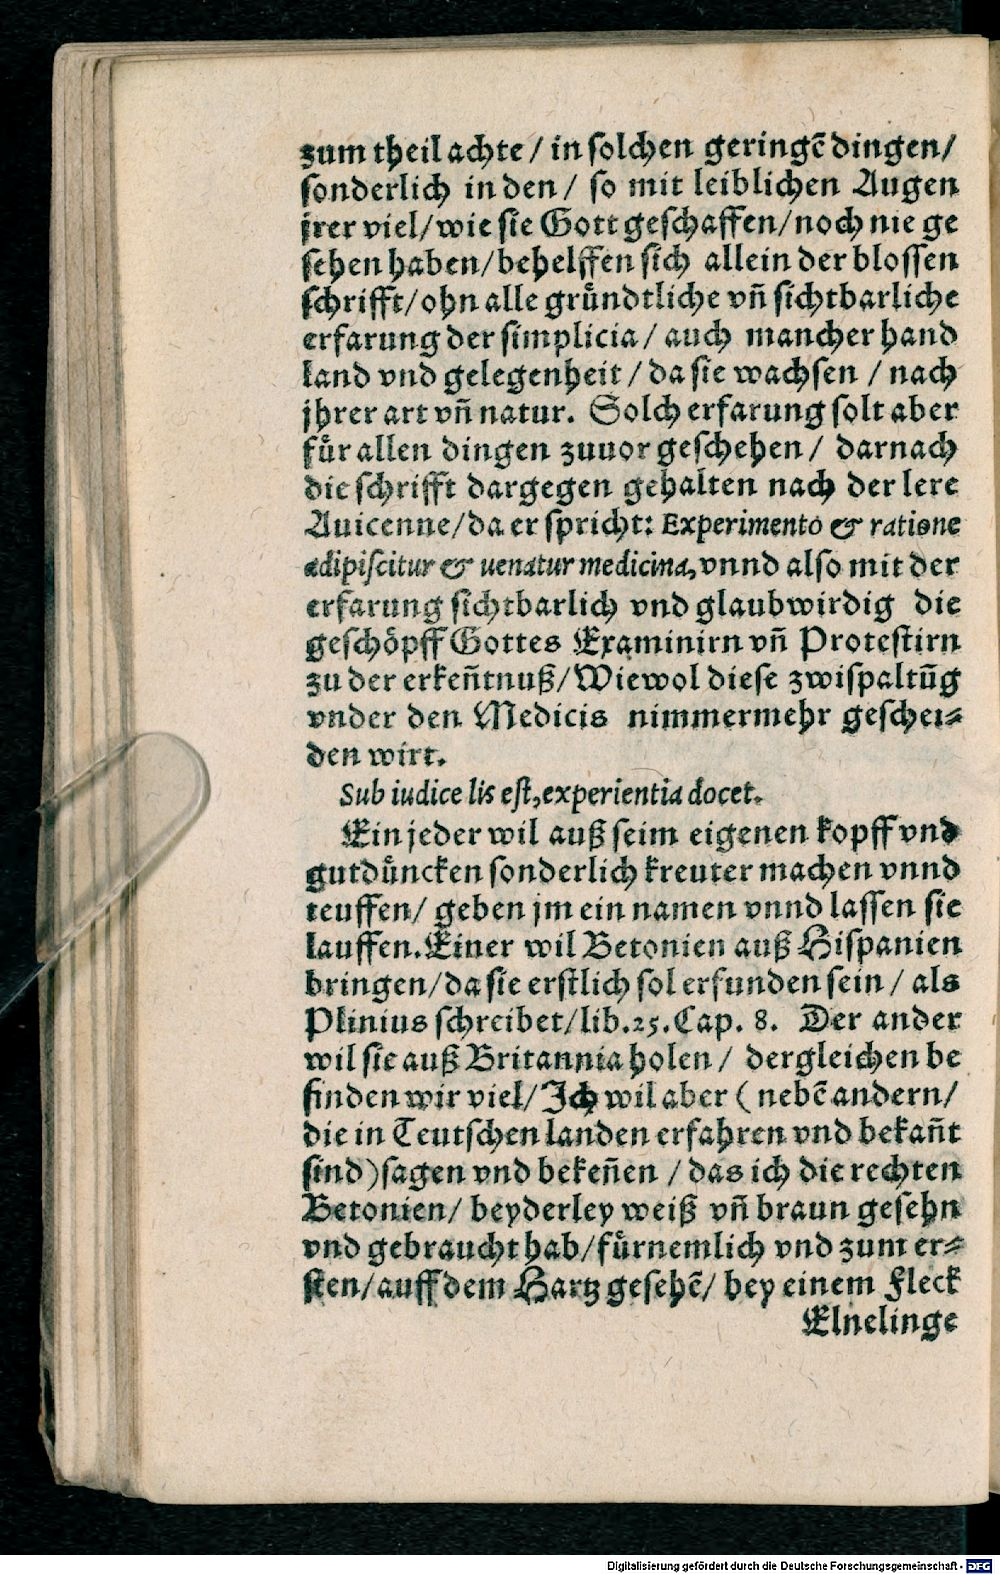 zum theil achte / in solchen geringē dingen/
sonderlich in den / so mit leiblichen Augen
jrer viel/wie sie Gott geschaffen/noch nie ge
sehen haben/behelffen sich allein der blossen
schrifft/ohn alle gruͤndtliche vñ sichtbarliche
erfarung der simplicia / auch mancher hand
land vnd gelegenheit / da sie wachsen / nach
jhrer art vñ natur. Solch erfarung solt aber
fuͤr allen dingen zuuor geschehen / darnach
die schrifft dargegen gehalten nach der lere
Auicenne/da er spricht: Experimento & ratione
adipiscitur & uenatur medicina, vnnd also mit der
erfarung sichtbarlich vnd glaubwirdig die
geschoͤpff Gottes Examinirn vñ Protestirn
zu der erkeñtnuß/Wiewol diese zwispaltūg
vnder den Medicis nimmermehr geschei⸗
den wirt.
Sub iudice lis est, experientia docet.
Ein jeder wil auß seim eigenen kopff vnd
gutduͤncken sonderlich kreuter machen vnnd
teuffen/ geben jm ein namen vnnd lassen sie
lauffen. Einer wil Betonien auß Hispanien
bringen/da sie erstlich sol erfunden sein / als
Plinius schreibet/lib.25.Cap. 8. Der ander
wil sie auß Britannia holen / dergleichen be
finden wir viel/Ich wil aber ( nebē andern/
die in Teutschen landen erfahren vnd bekañt
sind)sagen vnd bekeñen / das ich die rechten
Betonien/ beyderley weiß vñ braun gesehn
vnd gebraucht hab/fuͤrnemlich vnd zum er⸗
sten/auff dem Hartz gesehē/ bey einem Fleck
Elnelinge
Digitalisierung gefördert durch die Deutsche Forschungsgemeinschaft - DFG